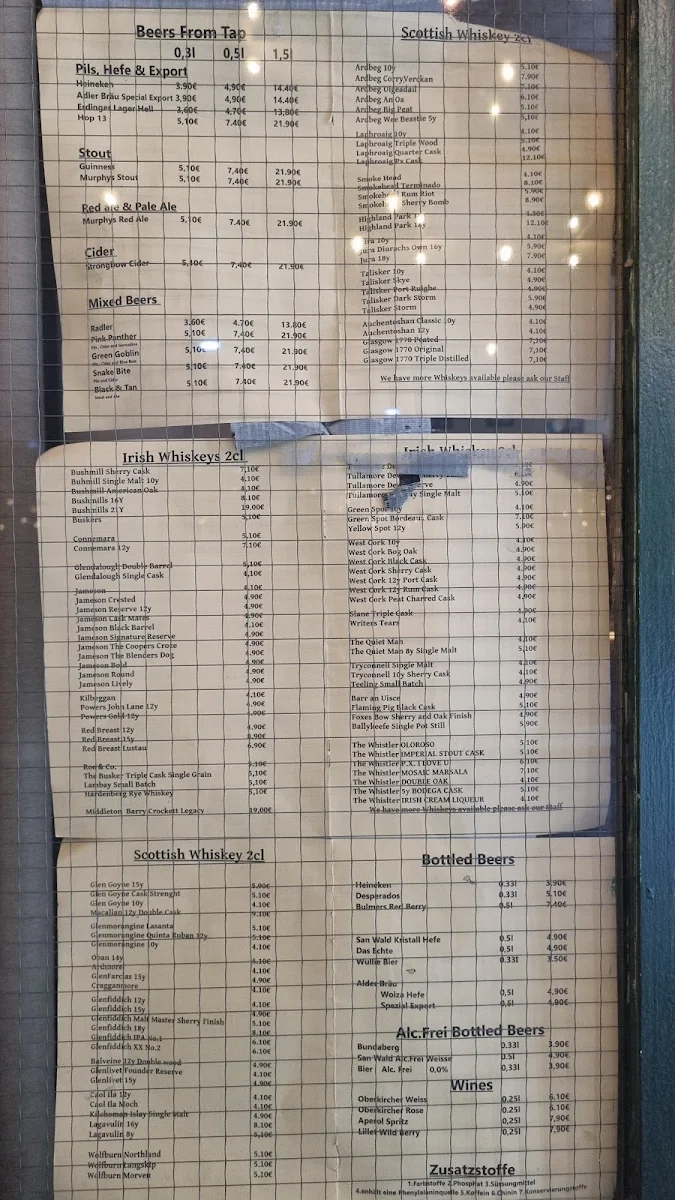 Beers From Tap
0,3l 0,5l 1,5l
Pils, Hefe & Export
Heineken 3.90€ 4,90€ 14.40€
Adler Bräu Special Export 3,90€ 4,90€ 14.40€
Erdinger Lager Hell 3,60€ 4,70€ 13,80€
Hop 13 5,10€ 7.40€ 21.90€
Stout
Guinness 5,10€ 7,40€ 21.90€
Murphys Stout 5,10€ 7,40€ 21.90€
Red ale & Pale Ale
Murphys Red Ale 5,10€ 7.40€ 21.90€
Cider
Strongbow Cider 5,10€ 7,40€ 21.90€
Mixed Beers
Radler 3,60€ 4.70€ 13.80€
Pink Panther 5,10€ 7,40€ 21.90€
Green Goblin 5,10€ 7,40€ 21.90€
Snake Bite 5,10€ 7,40€ 21.90€
Pils and Cider
Black & Tan 5.10€ 7.40€ 21.90€
Stout and Ale
Scottish Whiskey 2cl
Ardbeg 10y 5,10€
Ardbeg CorryVerckan 7.90€
Ardbeg Uigeadail 7.10€
Ardbeg An Oa 6.10€
Ardbeg Big Peat 5.10€
Ardbeg Wee Beastie 5y 5,10€
Laphroaig 10y 4.10€
Laphroaig Triple Wood 5.10€
Laphroaig Quarter Cask 4.90€
Laphroaig Px Cask 12.10€
Smoke Head 4.10€
Smokehead Terminado 8.10€
Rum Riot 5.90€
Sherry Bomb 8.90€
Highland Park
Highland Park 12.10€
Jura 10y 4.10€
Jura Diurachs Own 16y 5.90€
Jura 18y 7.90€
Talisker 10y 4.10€
Talisker Skye 4.90€
Talisker Port Ruighe 4.90€
Talisker Dark Storm 5.90€
Talisker Storm 4.90€
Auchentoshan Classic 10y 4.10€
Auchentoshan 12y 4.10€
Glasgow 1770 Peated 7,10€
Glasgow 1770 Original 7,10€
Glasgow 1770 Triple Distilled 7,10€
We have more Whiskeys available please ask our Staff
Irish Whiskeys 2cl
Bushmill Sherry Cask 7,10€
Buhmill Single Malt 10y 4,10€
Bushmill American Oak 4,10€
Bushmills 16Y 8.10€
Bushmills 21Y 19.00€
Buskers 5,10€
Connemara 5,10€
Connemara 12y 7,10€
Glendalough Double Barrel 5,10€
Glendalough Single Cask 4,10€
Jameson 4,10€
Jameson Crested 4.90€
Jameson Reserve 12y 4.90€
Jameson Cask Mates 4.90€
Jameson Black Barrel 4.10€
Jameson Signature Reserve 4.90€
Jameson The Coopers Croze 4.90€
Jameson The Blenders Dog 4.90€
Jameson Bold 4.90€
Jameson Round 4.90€
Jameson Lively 4.90€
Kilbeggan 4,10€
Powers John Lane 12y 4.90€
Powers Gold 12y 4.90€
Red Breast 12y 4.90€
Red Breast 15y 8.90€
Red Breast Lustau 6.90€
Roe & Co. 5.10€
The Busker Triple Cask Single Grain 5,10€
Lambay Small Batch 5,10€
Hardenberg Rye Whiskey 5,10€
Middleton Barry Crockett Legacy 19,00€
Irish Whiskey 2cl
Tullamore
Tullamore
Tullamore Single Malt 5.10€
Green Spot 4.10€
Green Spot Bordeaux Cask 7.10€
Yellow Spot 12y 5.90€
West Cork 10y 4.10€
West Cork Bog Oak 4.90€
West Cork Black Cask 4.90€
West Cork Sherry Cask 4.90€
West Cork 12y Port Cask 4.90€
West Cork 12y Rum Cask 4.90€
West Cork Peat Charred Cask 4.90€
Slane Triple Cask 4.90€
Writers Tears 4,10€
The Quiet Man 4,10€
The Quiet Man 8y Single Malt 5,10€
Tryconnell Single Malt 4.10€
Tryconnell 10y Sherry Cask 4.10€
Teeling Small Batch 4.90€
Barr an Uisce 4,90€
Flaming Pig Black Cask 5,10€
Foxes Bow Sherry and Oak Finish 4,90€
Ballykeefe Single Pot Still 5 90€
The Whistler OLOROSO 5 10€
The Whistler IMPERIAL STOUT CASK 5 10€
The Whistler P.X. I LOVE U 6 10€
The Whistler MOSAIC MARSALA 7,10€
The Whistler DOUBLE OAK 4,10€
The Whistler 5y BODEGA CASK 5,10€
The Whisliter IRISH CREAM LIQUEUR 4,10€
We have more Whiskeys available please ask our Staff
Scottish Whiskey 2cl
Glen Goyne 15y 5,90€
Glen Goyne Cask Strenght 5.10€
Glen Goyne 10y 4.10€
Macallan 12y Double Cask 9.10€
Glenmorangine Lasanta 5.10€
Glenmorangine Quinta Ruban 12y 5.10€
Glenmorangine 10y 4.10€
Oban 14y 6.10€
Ardmore 4.10€
GlenFarclas 15y 4.90€
Cragganmore 4.10€
Glenfiddich 12y 4.10€
Glenfiddich 15y 4.90€
Glenfiddich Malt Master Sherry Finish 5.10€
Glenfiddich 18y 8.10€
Glenfiddich IPA No.1 6.10€
Glenfiddich XX No.2 6.10€
Balveine 12y Double wood 4.90€
Glenlivet Founder Reserve 4.10€
Glenlivet 15y 4.90€
Caol Ila 12y 4.10€
Caol Ila Moch 4.10€
Kilchoman Islay Single Malt 4.90€
Lagavulin 16y 8.10€
Lagavulin 8y 5,10€
Wolfburn Northland 5.10€
Wolfburn Langskip 5.10€
Wolfburn Morven 5.10€
Bottled Beers
Heineken 0.33l 3,90€
Desperados 0.33l 5,10€
Bulmers Red Berry 0,5l 7,40€
San Wald Kristall Hefe 0,5l 4,90€
Das Echte 0,5l 4,90€
Wullle Bier 0.33l 3.50€
Alder Bräu
Woiza Hefe 0,5l 4,90€
Spezial Export 0,5l 4,90€
Alc.Frei Bottled Beers
Bundaberg 0.33l 3.90€
San Wald A.c.Frei Weisse 0.5l 4,90€
Bier Alc. Frei 0,0% 0,33l 3,90€
Wines
Oberkircher Weiss 0.25l 6,10€
Oberkircher Rose 0,25l 6.10€
Aperol Spritz 0,25l 7,90€
Lillet Wild Berry 0,25l 7,90€
Zusatzstoffe
1.Farbstoffe 2.Phosphat 3.Süssungmittel
4.enhält eine Phenylalaninquelle 5.Koffein 6.Chinin 7.Konservierungstoffe